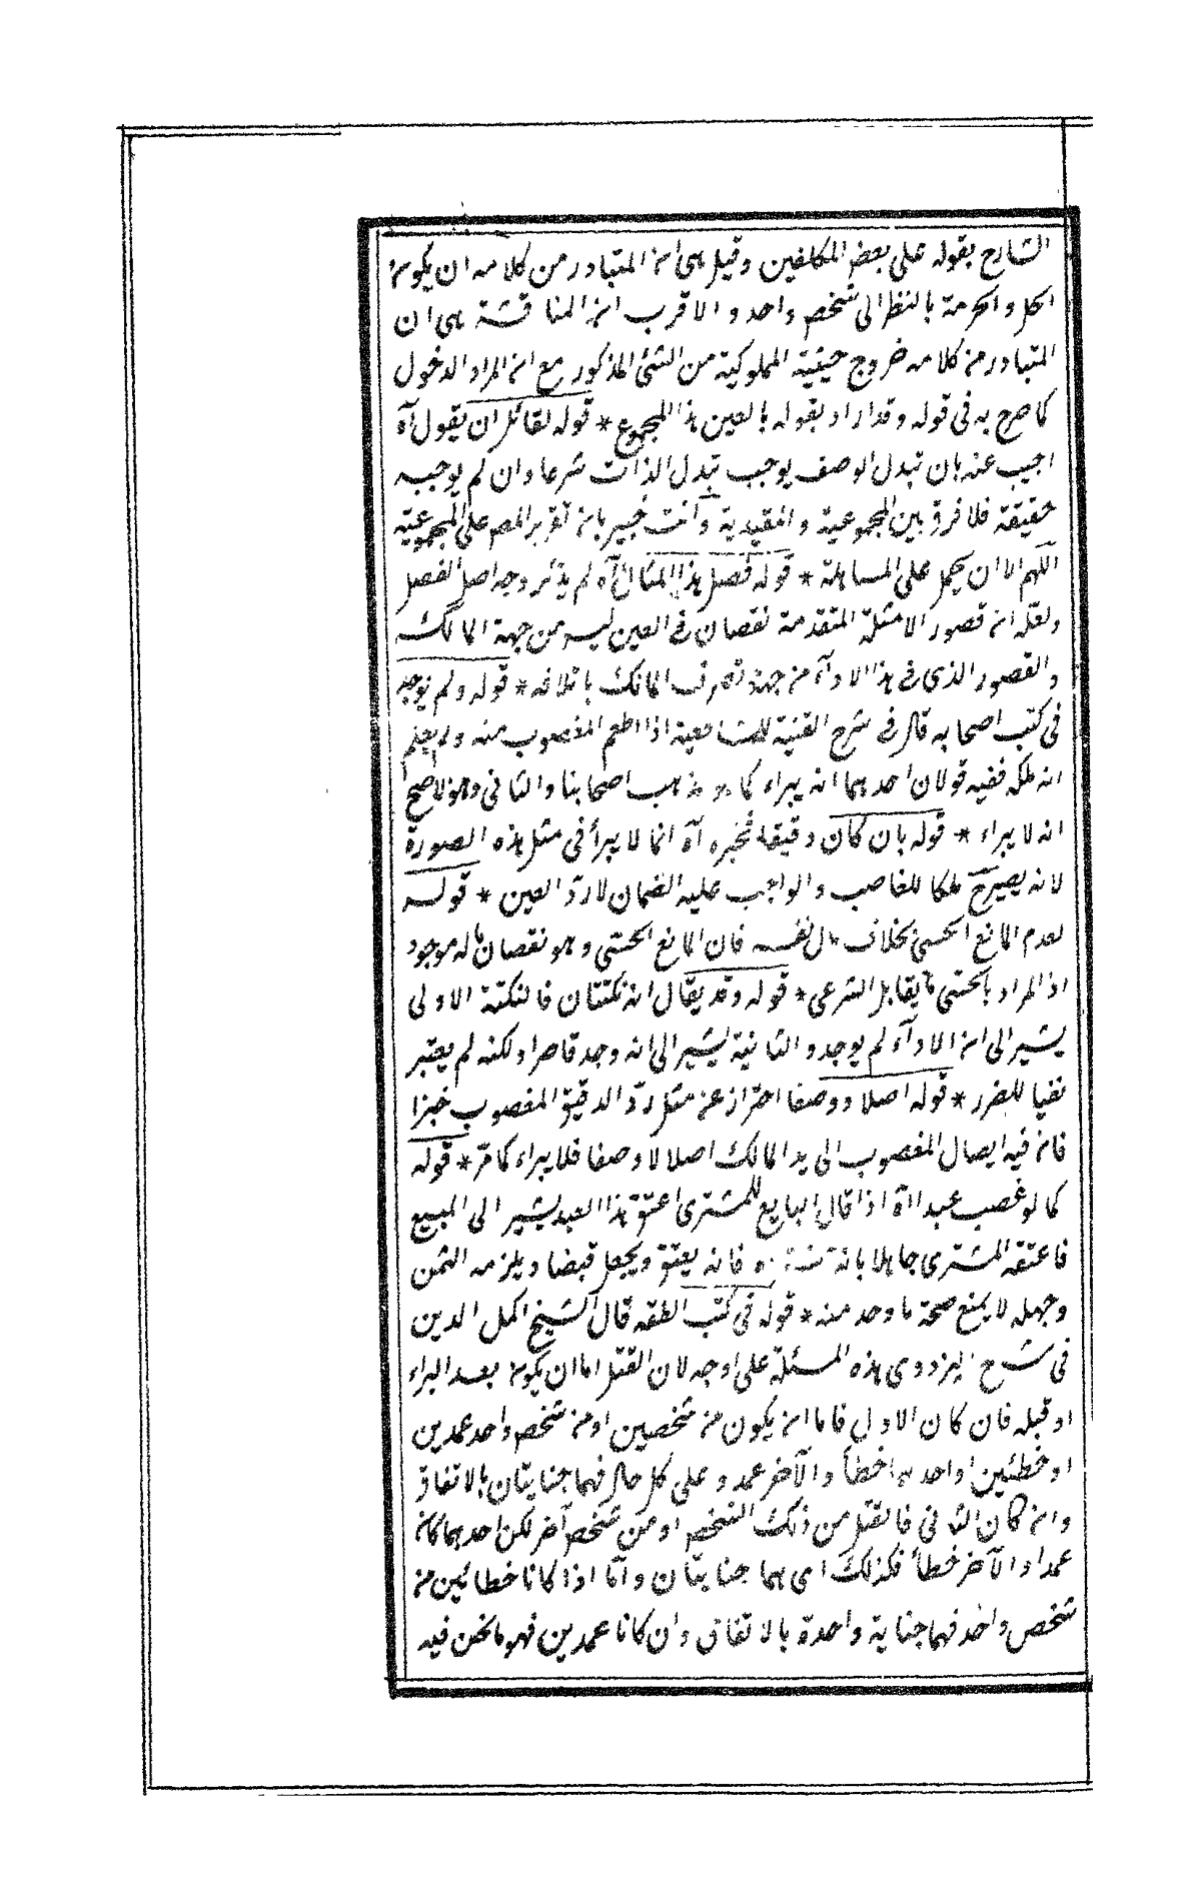 الشارح بقوله على بعض المكلفين وقيل هى ان المتبادر من كلامه ان يكون
الحل والحرمة بالنظر الى شخص واحد و الاقرب ان المناقشة هى ان
المتبادر من كلامه خروج حيثية المملوكية من الشئ المذكور مع ان المراد الدخول
كما صرح به فى قوله وقد اراد بقوله بالعين هذا المجموع * قوله لقائل ان يقول آه
اجيب عنه بان تبدل الوصف يوجب تبدل الذات شرعا وان لم يوجبه
حقيقة فلا فرق بين المجموعية والمقيدية وانت خبير بان تقرير المص على المجموعية
اللهم الا ان يحمل على المساهلة * قوله فصل هذا المثال آه لم يذكر وجه اصل الفصل
ولعله ان قصور الامثلة المتقدمة نقصان فى العين ليس من جهة المالك
والقصور الذى فى هذا الاداء من جهة تصرف المالك باتلافه * قوله ولم يوجد
فى كتب اصحابه قال فى شرح القنية للشافعية اذا اطعم المغصوب منه ولم يعلم
انه ملكه ففيه قولان احدهما انه يبراء كما هو مذهب اصحابنا والثانى وهو الاصح
انه لا يبراء * قوله بان كان دقيقا فخبزه آه انما لا يبرأ فى مثل هذه الصورة
لانه يصيرح ملكا للغاصب والواجب عليه الضمان لا ردّ العين * قوله
لعدم المانع الحسى بخلاف مال نفسه فان المانع الحسّى وهو نقصان ماله موجود
اذ المراد بالحسّى ما يقابل الشرعى * قوله وقد يقال انه نكتتان فالنكتة الاولى
يشير الى ان الاداء لم يوجد و الثانية يشير الى انه وجد قاصرا ولكنه لم يعتبر
نفيا للضرر * قوله اصلا ووصفا احتراز عن مثل ردّ الدقيق المغصوب خبزا
فان فيه ايصال المغصوب الى يد المالك اصلا لا وصفا فلا يبراء كما مرّ * قوله
كما لو غصب عبدا آه اذا قال البايع للمشترى اعتق هذا العبد يشير الى المبيع
فاعتقه المشترى جاهلا بانه فانه يعتق ويجعل قبضا ويلزمه الثمن
وجهله لا يمنع صحة ما وجد منه * قوله فى كتب الفقه قال الشيخ اكمل الدين
فى شرح البزدوى هذه المسئلة على اوجه لان القتل اما ان يكون بعد البراء
او قبله فان كان الاول فاما ان يكون من شخصين او من شخص واحد عمدين
او خطئين او احدهما خطأ والآخر عمد و على كل حال فهما جنايتان بالاتفاق
وان كان الثانى فالقتل من ذلك الشخص او من شخص آخر لكن احدهما كان
عمدا والآخر خطأ فكذلك اى هما جنايتان و امّا اذا كانا خطائين من
شخص واحد فهما جناية واحدة بالاتفاق وان كانا عمدين فهو ما نحن فيه